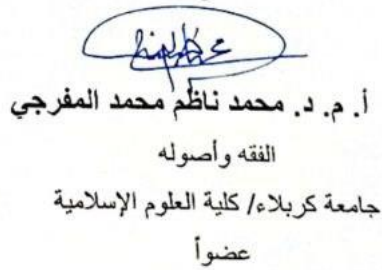 أ. م. د. محمد ناظم محمد المفرجي
الفقه وأصوله
جامعة كربلاء/ كلية العلوم الإسلامية
عضواً